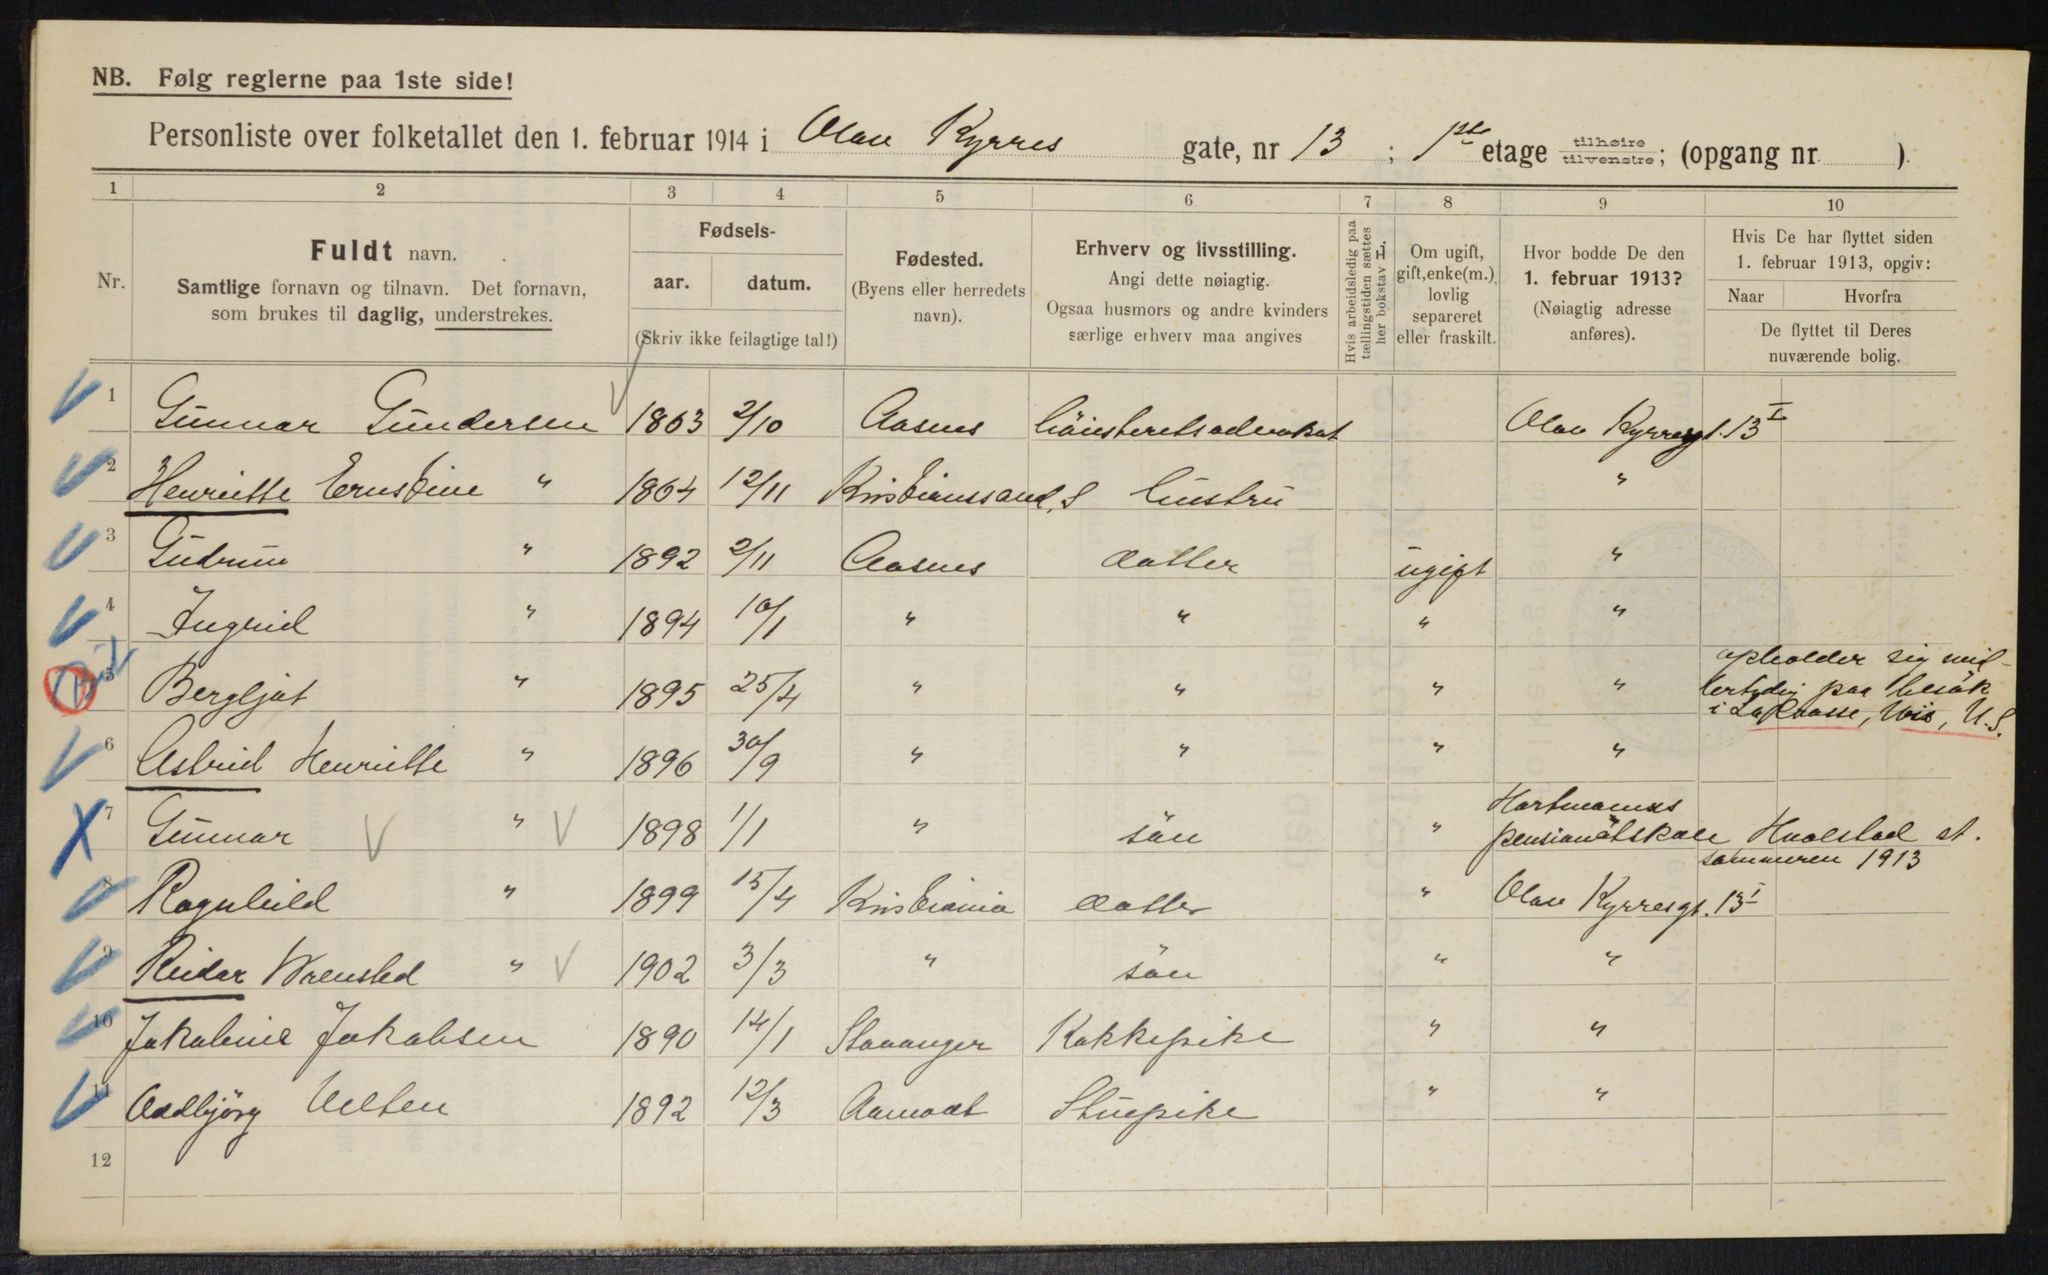 NB. Følg reglerne paa 1ste side!
Personliste over folketallet den 1. februar 1914 i Olav Kyrres gate, nr 13 ; 1ste etage tilhøire tilvenstre; (opgang nr. ).
1 2 3 4 5 6 7 8 9 10
Nr.
Fuldt navn.
Samtlige fornavn og tilnavn. Det fornavn,
som brukes til daglig, understrekes.
Fødsels-
aar. datum.
(Skriv ikke feilagtige tal!)
Fødested.
(Byens eller herredets
navn).
Erhverv og livsstilling.
Angi dette nøiagtig.
Ogsaa husmors og andre kvinders
særlige erhverv maa angives
Hvis arbeidsledig paa
tællingstiden sættes
her bokstav L.
Om ugift,
gift, enke(m.),
lovlig
separeret
eller fraskilt.
Hvor bodde De den
1. februar 1913?
(Nøiagtig adresse
anføres).
Hvis De har flyttet siden
1. februar 1913, opgiv:
Naar Hvorfra
De flyttet til Deres
nuværende bolig.
1 Gunnar Gundersen 1863 2/10 Aasnes höiesteretsadvokat Olav Kyrresgt. 13 I
2 Henriette Ernstine " 1864 12/11 Kristianssand S Hustru "
3 Gudrun " 1892 2/11 Aasnes datter ugift "
4 Ingrid " 1894 10/1 " " " "
5 Bergljot " 1895 25/4 " " " " opholder sig mid-
lertidig paa besök
i La Crosse, Wis, U.S.
6 Astrid Henriette " 1896 30/9 " " " "
7 Gunnar " 1898 1/1 " sön " Hartmanns
pensionatskole Hvalstad st.
sommeren 1913
8 Ragnhild " 1899 15/4 Kristiania datter " Olav Kyrresgt. 13 I
9 Reidar " 1902 3/3 " sön " "
10 Jakobine Jakobsen 1890 14/1 Stavanger Kokkepike " "
11 Oddbjörg 1892 12/3 Aamodt Stuepike " "
12